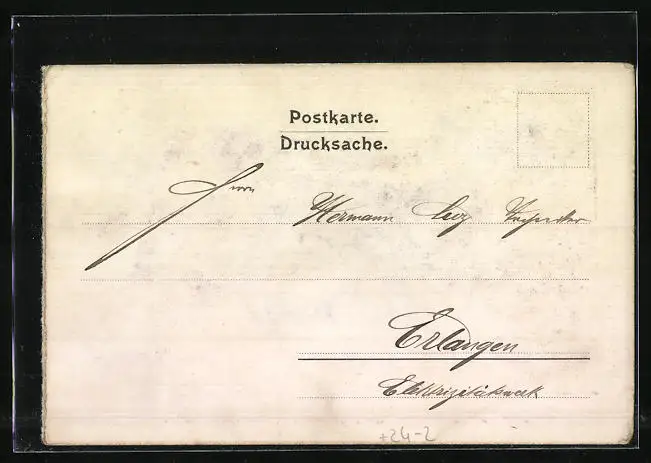 Postkarte.
Drucksache.
Herrn
Hermann
Erlangen
Elektrizitätswerk
+24-2